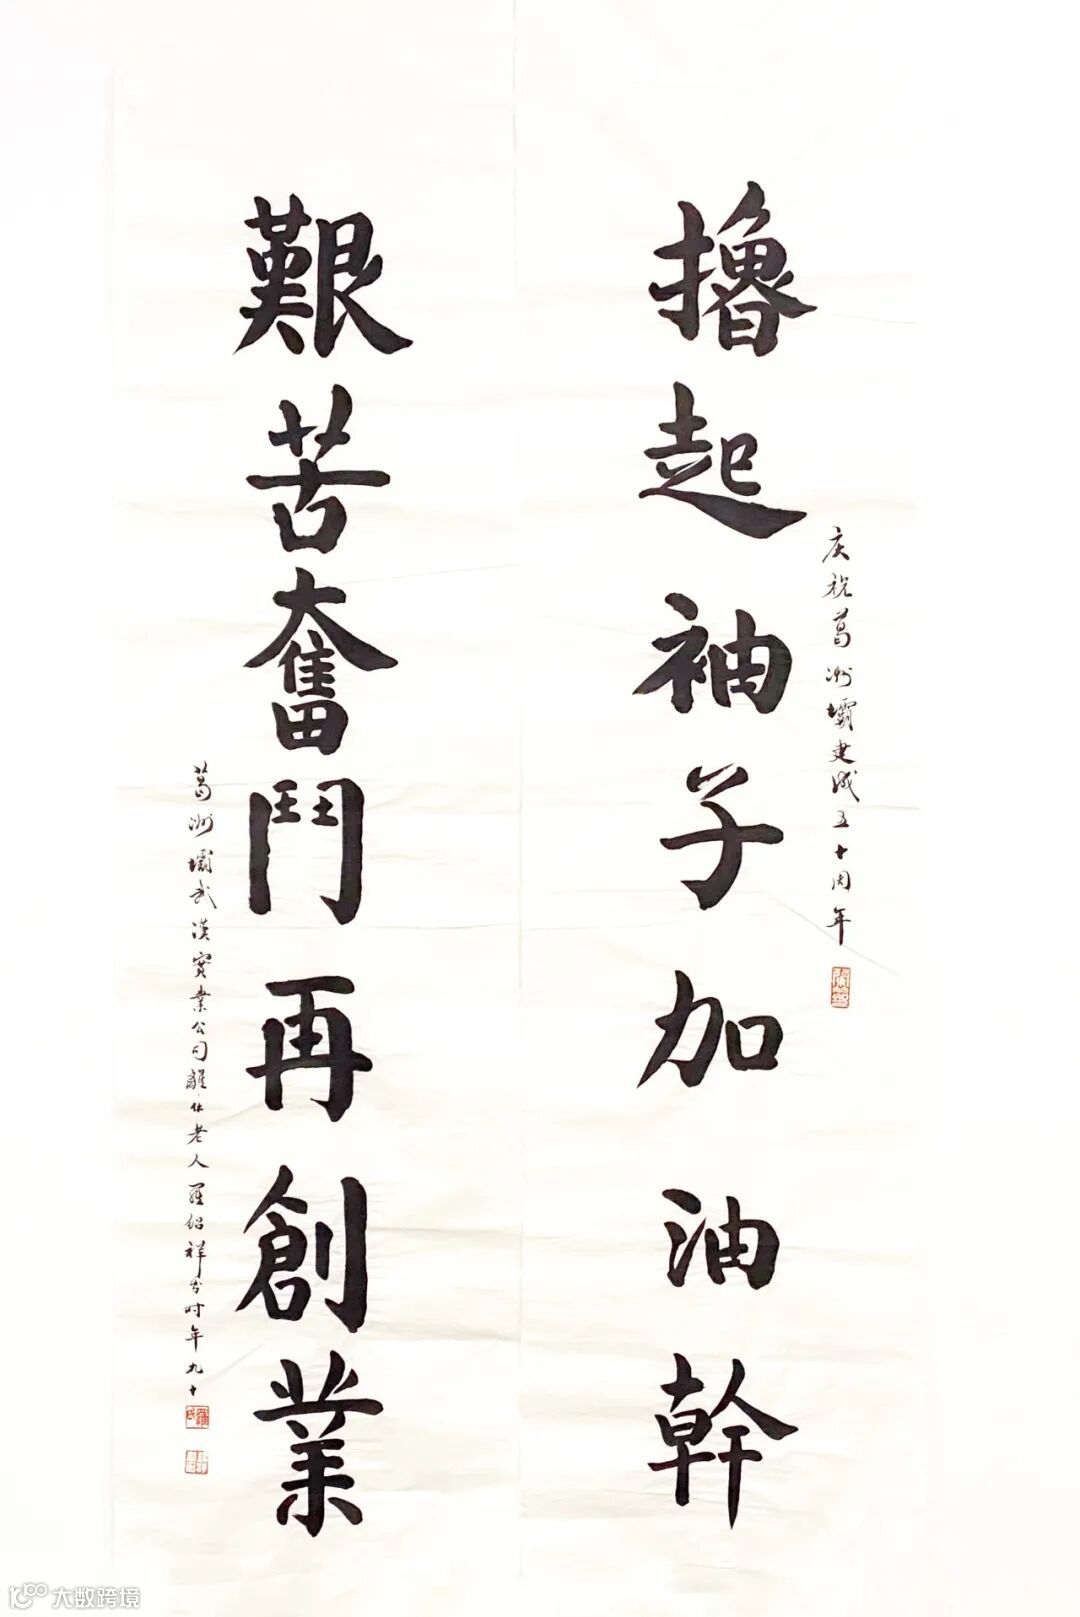 擼起袖子加油幹
庆祝葛洲壩建成五十周年
艱苦奮鬥再創業
葛洲壩武漢實業公司離休老人羅紹祥书时年九十
大数跨境